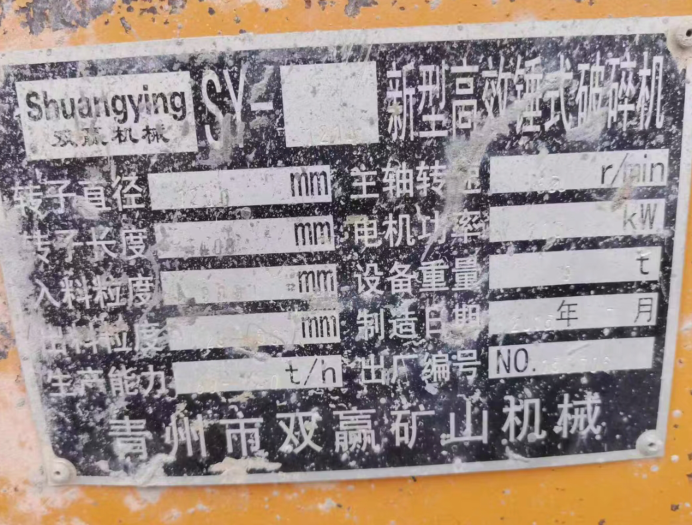 Shuangying
双赢机械
SY- 新型高效锤式破碎机
转子直径 mm 主轴转速 r/min
转子长度 mm 电机功率 kW
入料粒度 mm 设备重量 t
出料粒度 mm 制造日期 年 月
生产能力 t/h 出厂编号 NO.
青州市双赢矿山机械